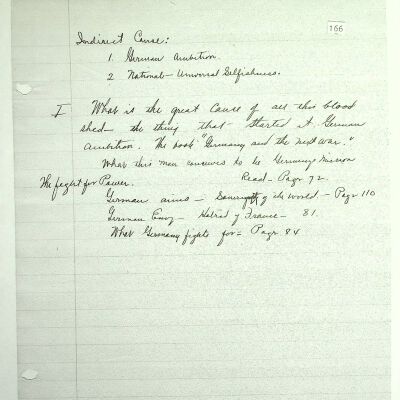 166
Indirect Cause:
1. German Ambition.
2 National - Universal Selfishness.
I What is the great cause of all this blood
shed - the thing that started it German
Ambition. The book "Germany and the next war."
What this man conceives to be Germany mission
Read - Page 72.
The fight for Power.
German aims - of the world. - Page 110
German Envy - Hatred of France - 81.
What Germany fights for = Page 84